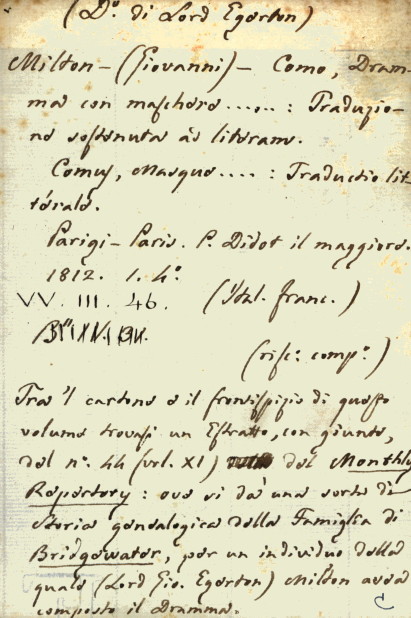 (Do. di Lord Egerton)
Milton - (Giovanni) - Como, Dram-
ma con maschere ...... : Traduzio-
ne sostenuta às literam.
Comus, Masque .... : Traductio lit-
térale.
Parigi - Paris. P. Didot il maggiore.
1812. 1. 4o.
VV. III. 46. (Ital. franc.)
(rifc: compo.)
Tra 'l cartone e il frontispizio di questo
volume trovasi un Estratto, con giunte,
del no. 44 (vol. XI) del Monthly
Repertory: ove si dà una sorta di
storia genealogica della Famiglia di
Bridgewater, per un individuo della
quale (Lord Gio. Egerton) Milton avea
composto il Dramma.
C